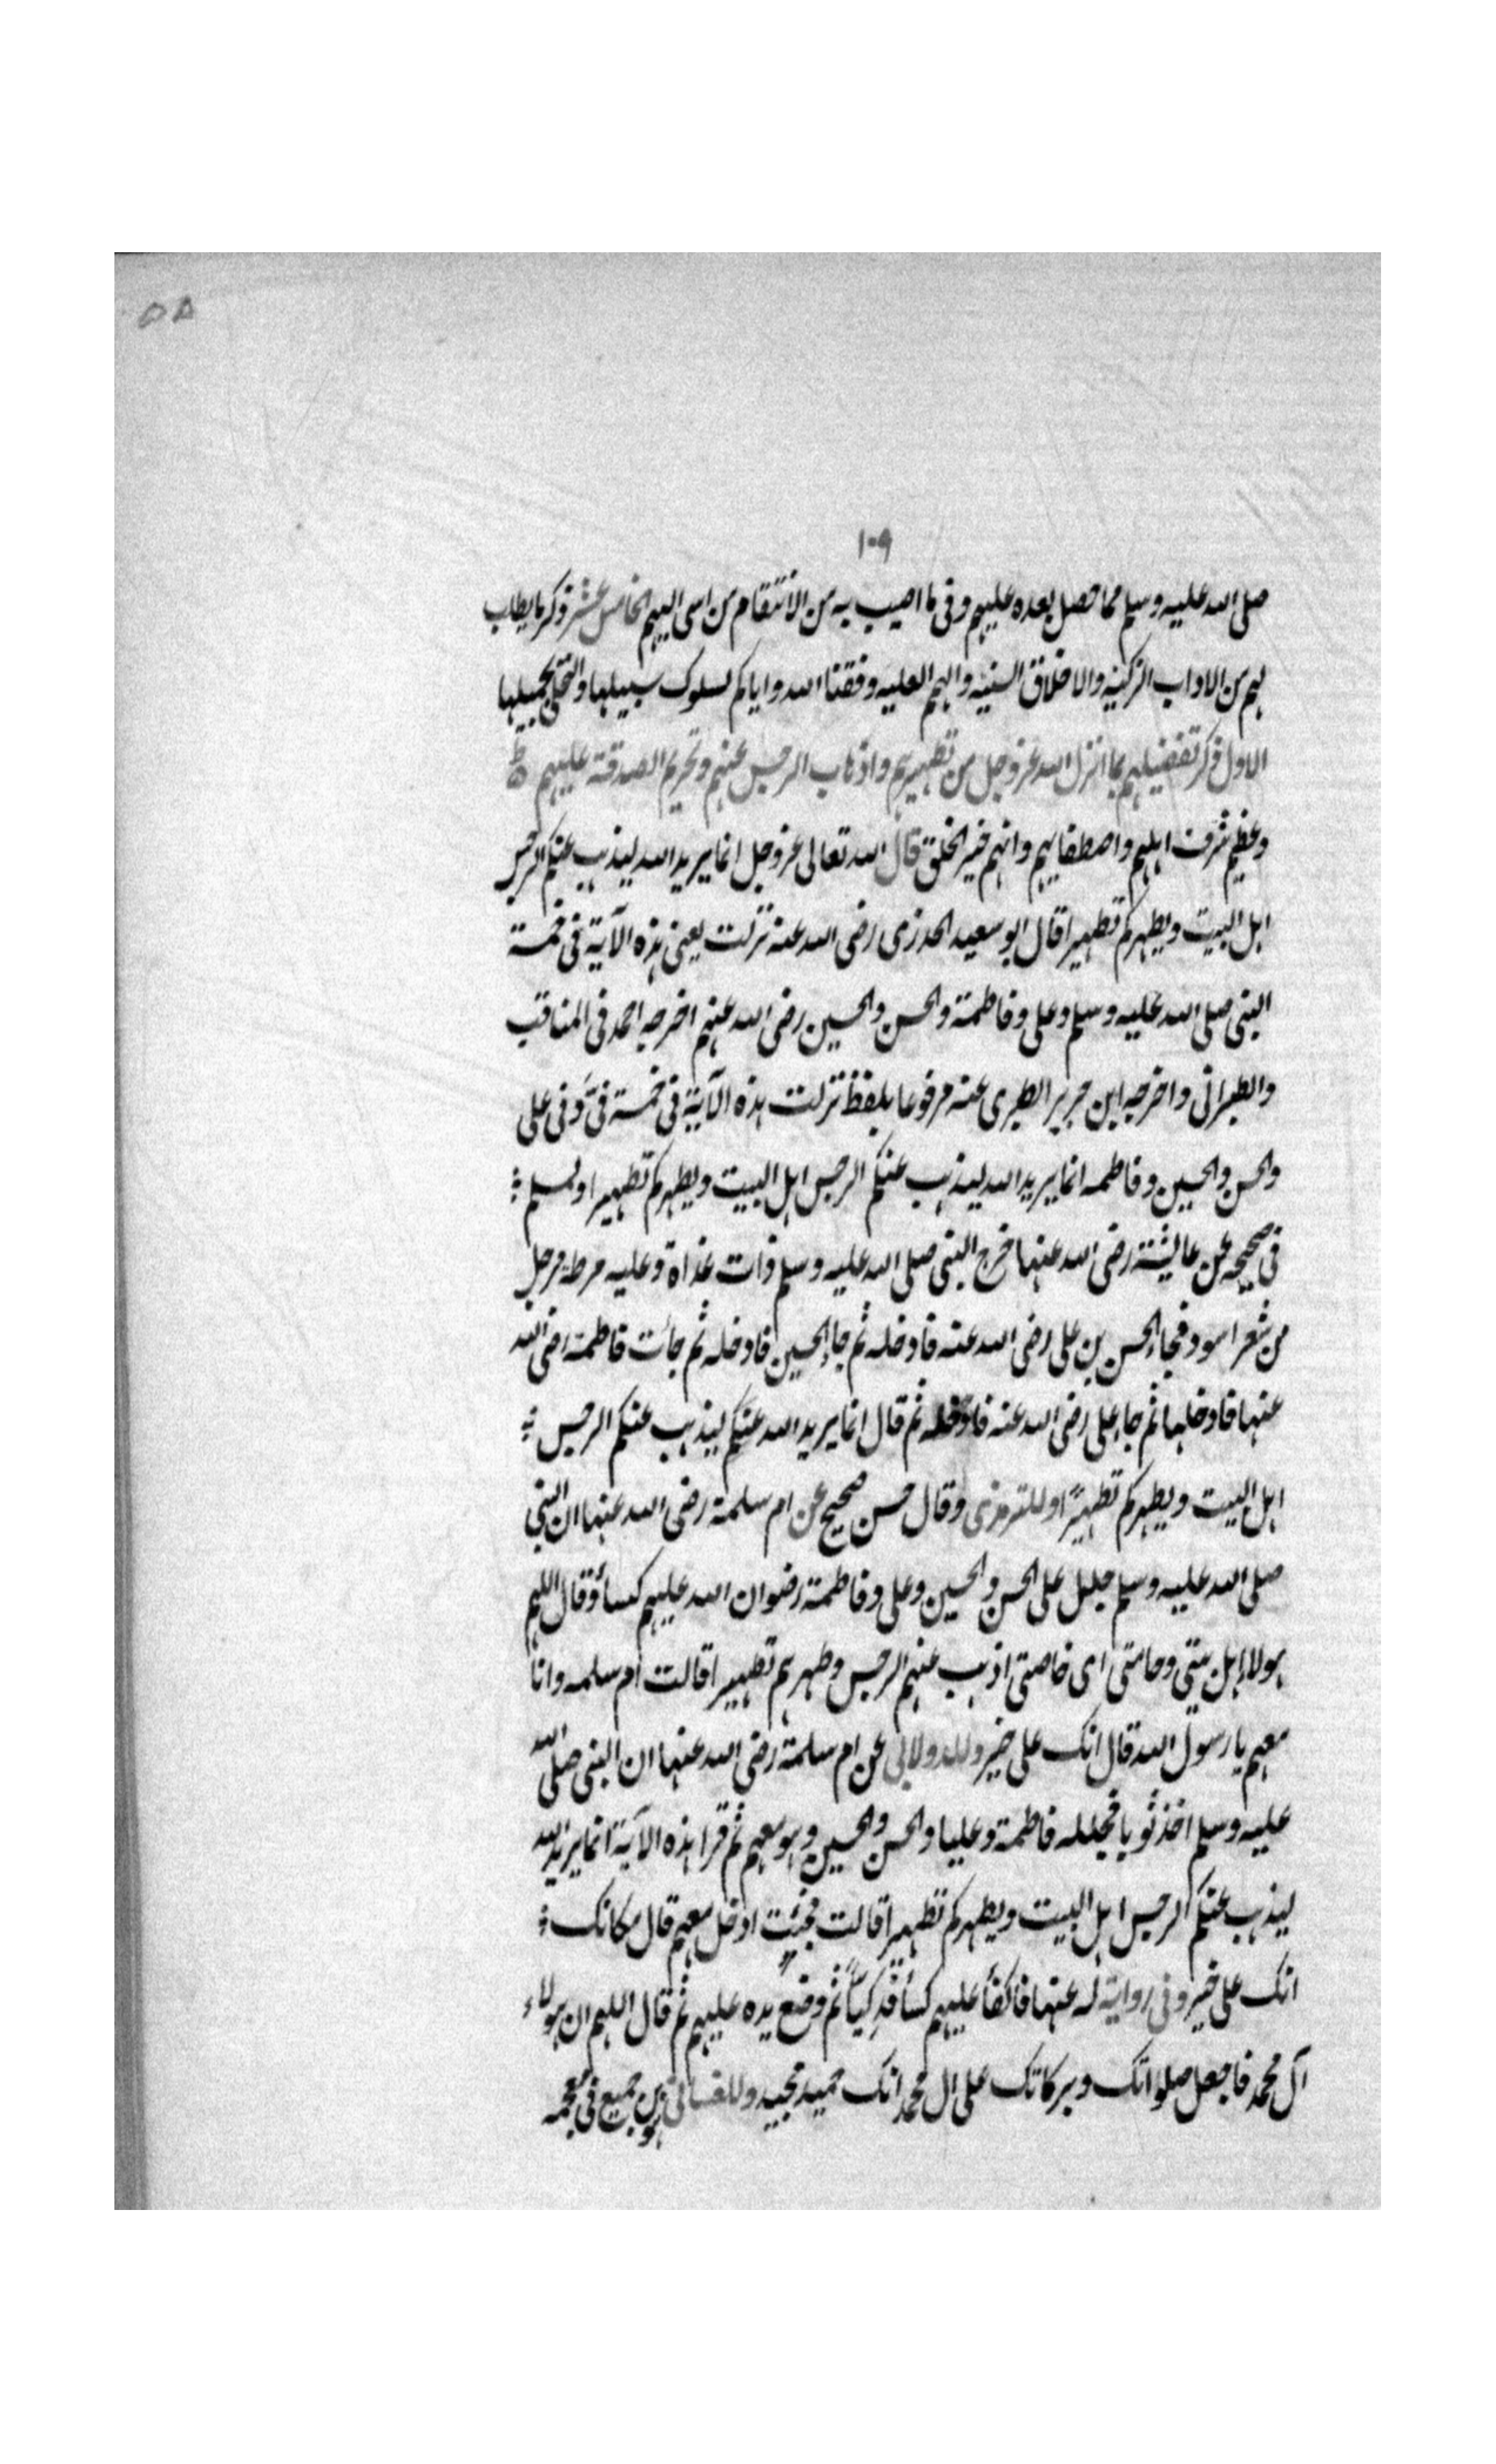 ۵۵
۱۰۹
صلى الله عليه وسلم مما حصل بعده عليهم وفى ما اصيب به من الانتقام من اسى اليهم الخامس عشر ذكر ما يطاب
لهم من الاداب الزكية والاخلاق السنية والهم العلية وفقنا الله واياكم لسلوك سبيلها والتحلى بجميلها
الاول ذكر تفضيلهم بما انزل الله عز وجل من تطهيرهم واذهاب الرجس عنهم وتحريم الصدقة عليهم
وعظيم شرف اهلهم واصطفايهم وانهم خير الخلق قال الله تعالى عز وجل انما يريد الله ليذهب عنكم الرجس
اهل البيت ويطهركم تطهيرا قال ابو سعيد الخدرى رضى الله عنه نزلت يعنى هذه الآية فى خمسة
النبى صلى الله عليه وسلم وعلى وفاطمة والحسن والحسين رضى الله عنهم اخرجه احمد فى المناقب
والطبرانى واخرجه ابن جرير الطبرى عنه مرفوعا بلفظ نزلت هذه الآية فى خمسة فىّ وفى على
والحسن والحسين وفاطمه انما يريد الله ليذهب عنكم الرجس اهل البيت ويطهركم تطهيرا ولمسلم
فى صحيحه عن عايشة رضى الله عنها خرج النبى صلى الله عليه وسلم ذات غداة وعليه مرط مرحل
من شعر اسود فجاء الحسن بن على رضى الله عنه فادخله ثم جاء الحسين فادخله ثم جأت فاطمة رضى الله
عنها فادخلها ثم جاء على رضى الله عنه فادخله ثم قال انما يريد الله عنكم ليذهب عنكم الرجس
اهل البيت ويطهركم تطهيرًا وللترمذى وقال حسن صحيح عن ام سلمة رضى الله عنها ان النبى
صلى الله عليه وسلم جلل على الحسن والحسين وعلى وفاطمة رضوان الله عليهم كسأ وقال اللهم
هولاء اهل بيتى وحامتى اى خاصتى اذهب عنهم الرجس وطهرهم تطهيرا قالت ام سلمه وانا
معهم يا رسول الله قال انك على خير وللدولابى عن ام سلمة رضى الله عنها ان النبى صلى الله
عليه وسلم اخذ ثوبا فجلله فاطمة وعليا والحسن والحسين وهو معهم ثم قرا هذه الآية انما يريد الله
ليذهب عنكم الرجس اهل البيت ويطهركم تطهيرا قالت فجئت ادخل معهم قال مكانك
انك على خير وفى رواية له عنها فاكفأ عليهم كسأ فدكيأ ثم وضع يده عليهم ثم قال اللهم ان هولاء
آل محمد فاجعل صلواتك وبركاتك على ال محمد انك حميد مجيد وللغسانى بن جميع فى معجمه